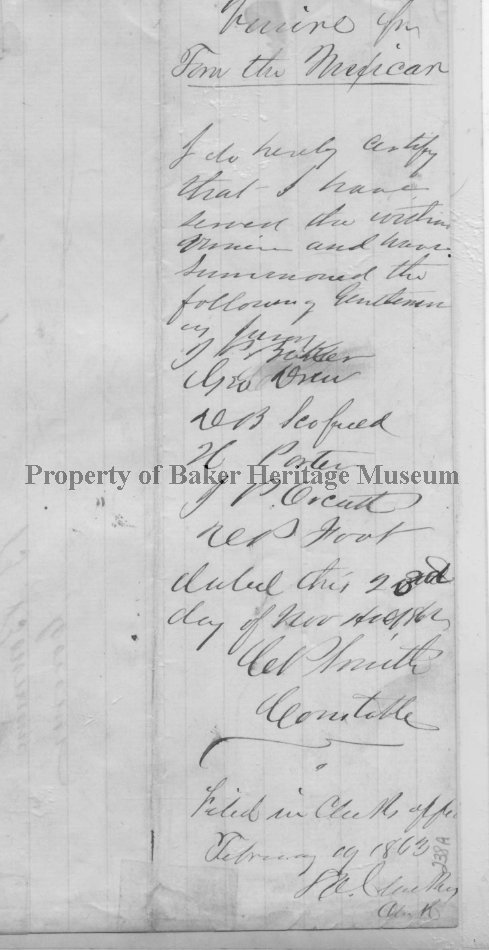 Venire for
Tom the Mexican
I do hereby Certify
that I have
served the within
Venire and have
Summoned the
following Gentlemen
as Jury
J P. Barker
Geo Drew
D B Scofield
H Porter
J P. Orcutt
D P Foot
dated this 2nd
day of Nov AD 1862
C P Smith
Constable
Filed in Clerks office
February 19 1863
Clerk
238A
Property of Baker Heritage Museum